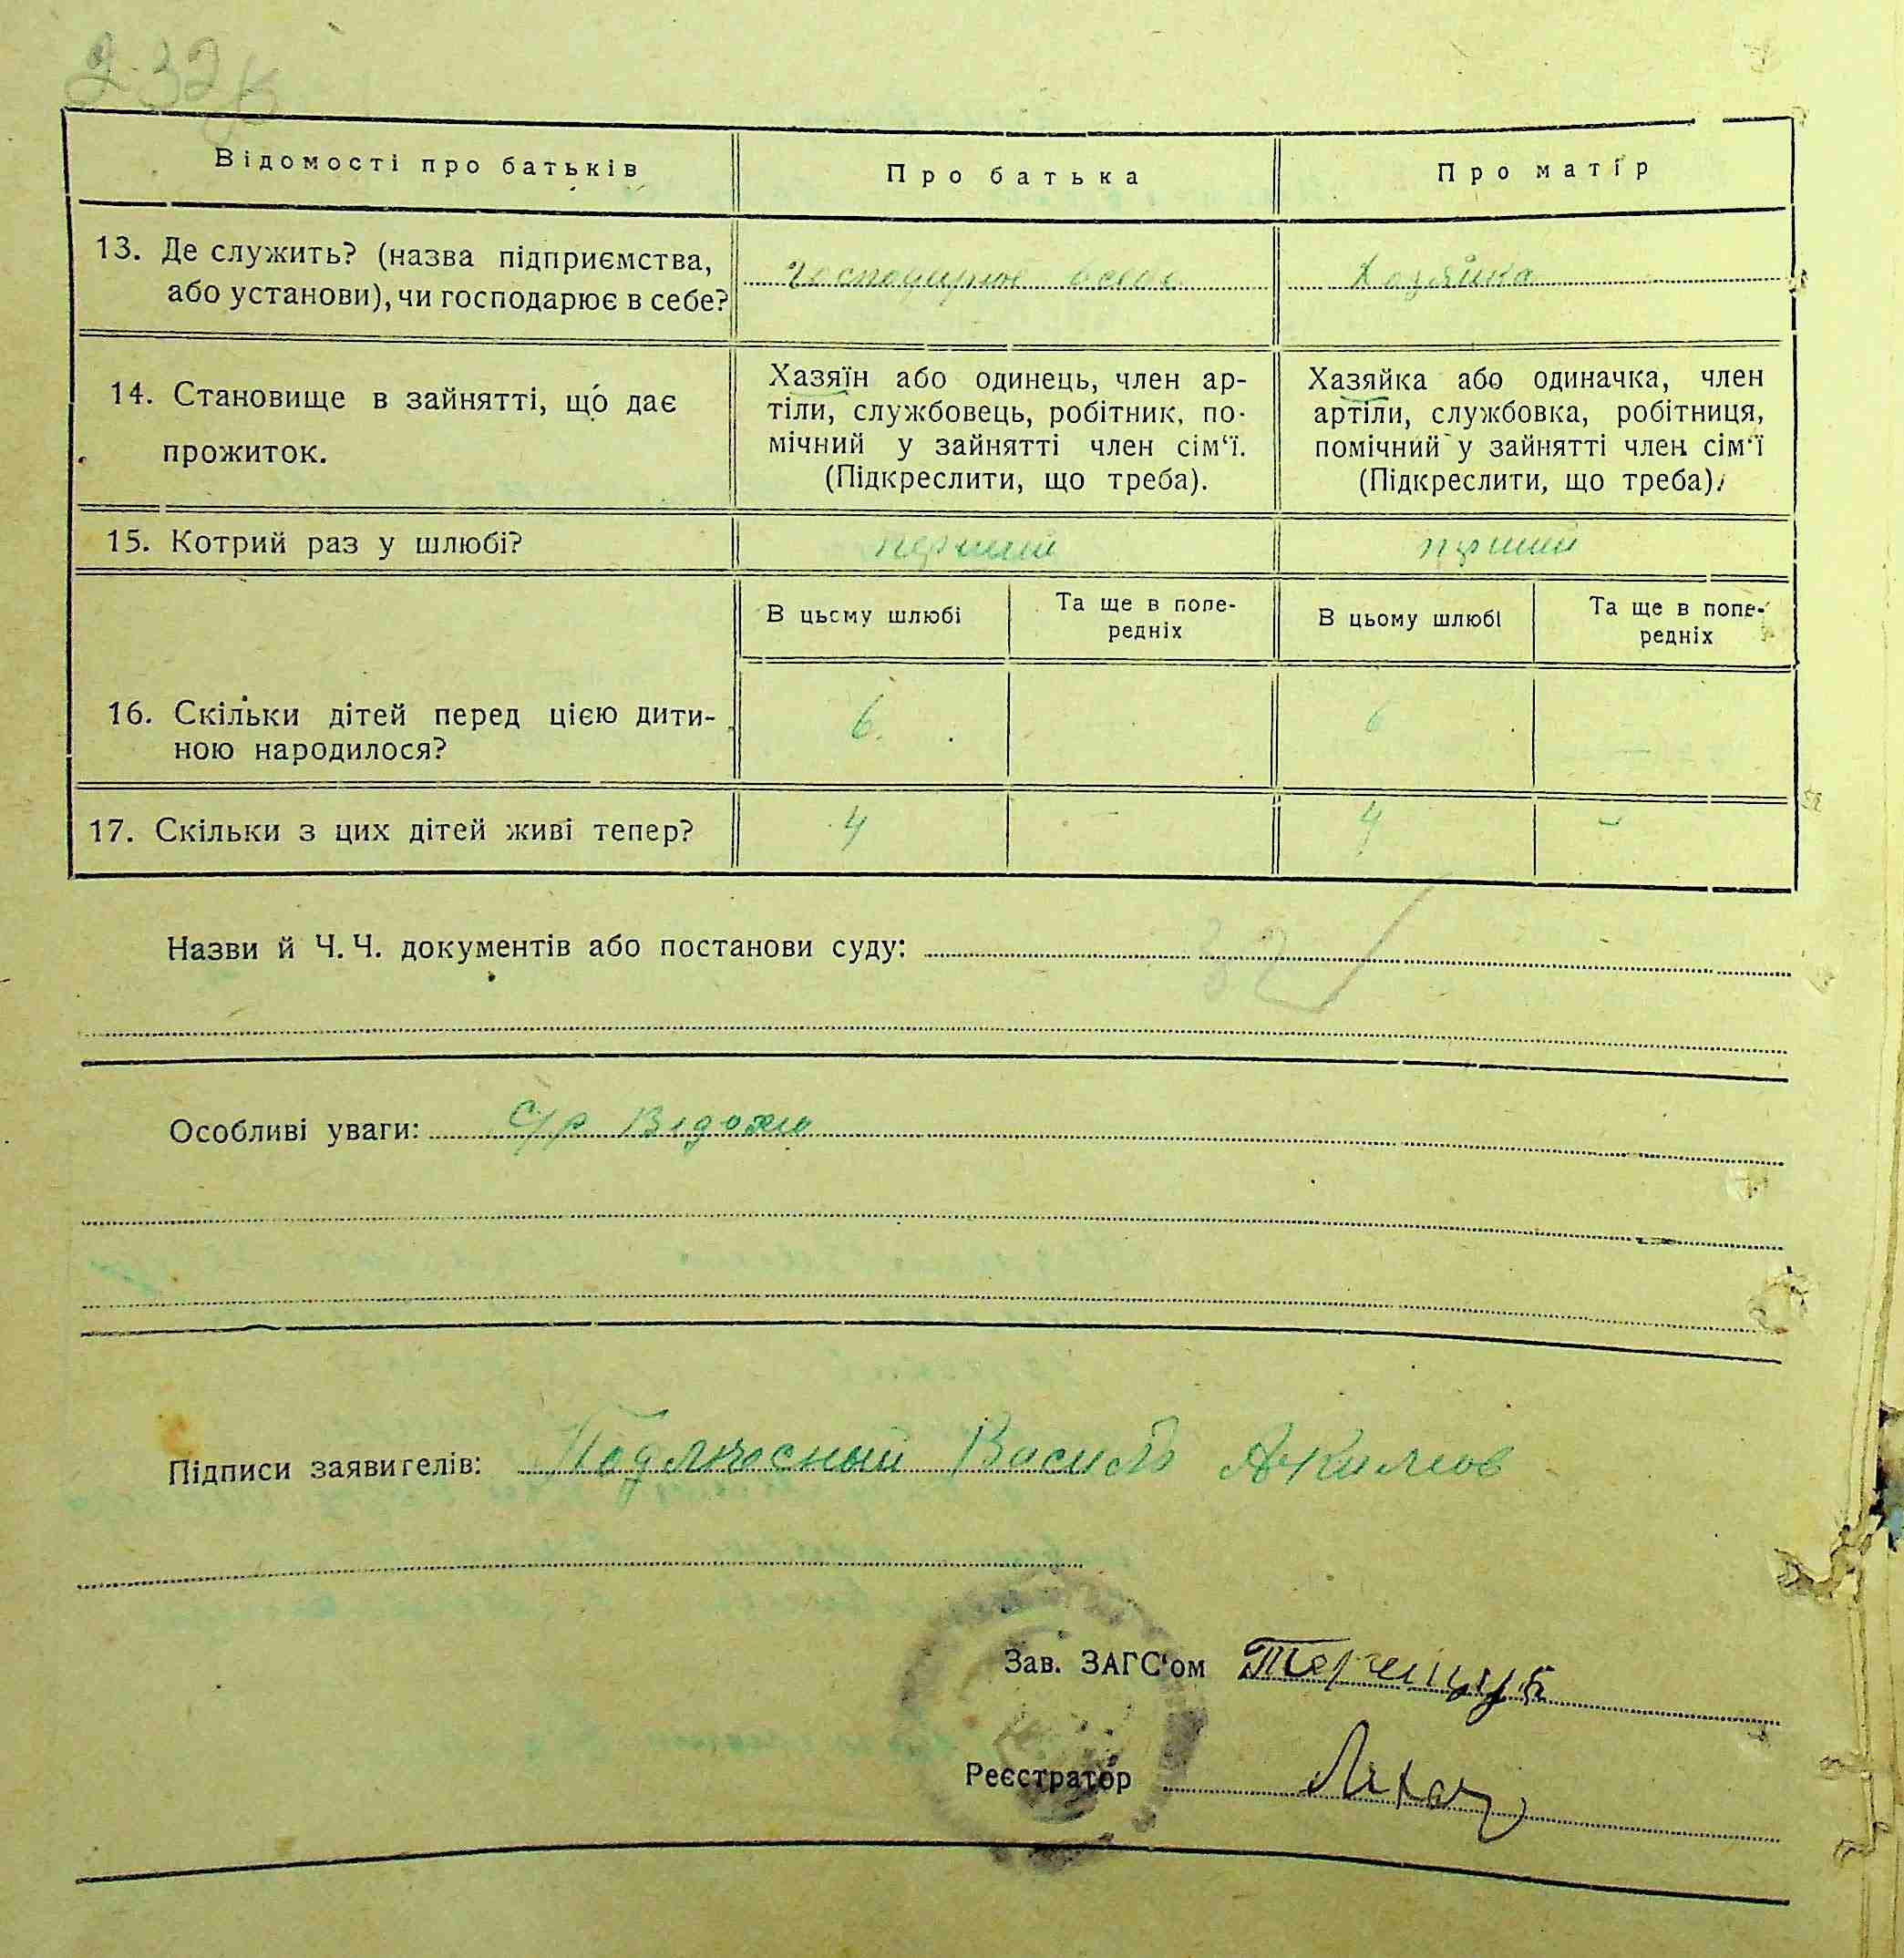 2.32
Відомості про батьків
Про батька
Про матір
13. Де служить? (назва підприємства,
або установи), чи господарює в себе?
господарює в себе
Хозяйка
14. Становище в зайнятті, що дає
прожиток.
Хазяїн або одинець, член ар-
тіли, службовець, робітник, по-
мічний у зайнятті член сім‘ї.
(Підкреслити, що треба).
Хазяйка або одиначка, член
артіли, службовка, робітниця,
помічний у зайнятті член сім‘ї
(Підкреслити, що треба).
15. Котрий раз у шлюбі?
перший
перший
В цьому шлюбі
Та ще в попе-
редніх
В цьому шлюбі
Та ще в попе-
редніх
16. Скільки дітей перед цією дити-
ною народилося?
6
6
—
17. Скільки з цих дітей живі тепер?
4
—
4
—
Назви й Ч.Ч. документів або постанови суду:
32
Особливі уваги: С/р
Підписи заявителів: Василь Акимов
Зав. ЗАГС‘ом Терещук
Реєстратор